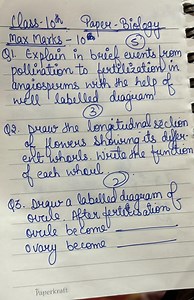 Class-10th Paper-Biology
Max Marks - 10
(5)
Q1. Explain in brief events from
pollination to fertilization in
angiosperms with the help of
well labelled diagram
(3)
Q2. Draw the longitudnal section
of flowers showing its differ
ent whorls. Write the function
of each whorl.
(2)
Q3. Draw a labelled diagram of
ovule. After fertilization
ovule become
ovary become
Paperkraft